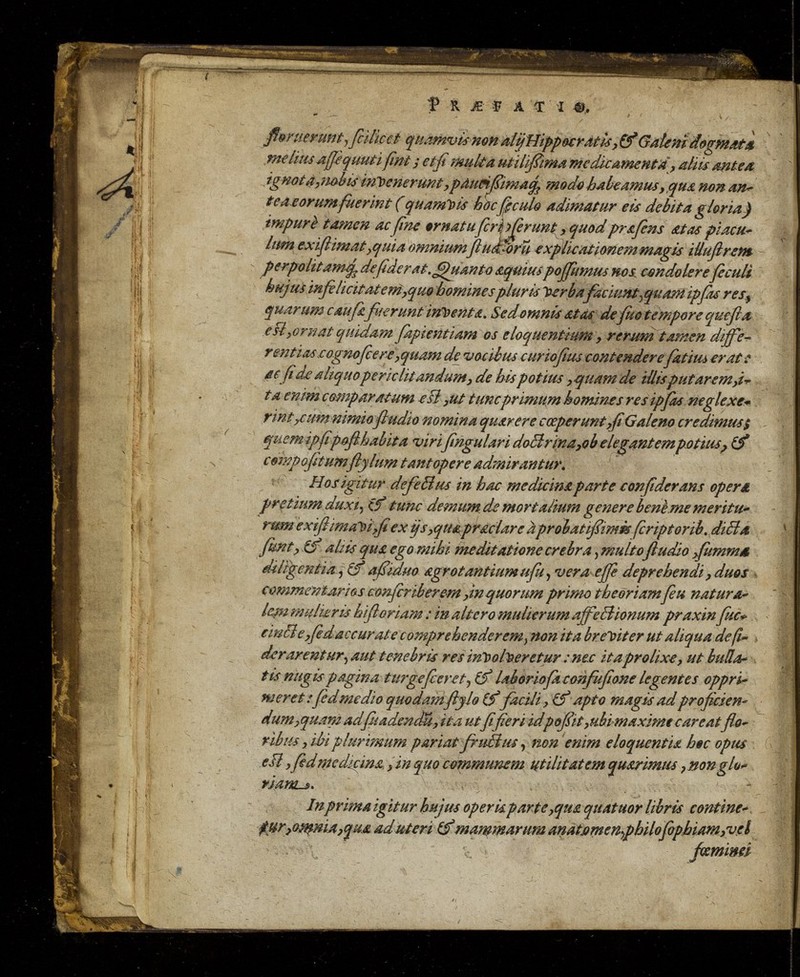 PRÆFATIO.
floruerunt, scilicet quamvis non alij Hippocratis, & Galeni dogmata
melius assequuti sint; etsi multa utilissima medicamenta, aliis antea
ignota, nobis invenerunt, paucissimaq, modo habeamus, quæ non an-
tea eorum fuerint (quamvis hoc seculo adimatur eis debita gloria)
impurè tamen ac sine ornatu scripserunt, quod præsens ætas piacu-
lum existimat, quia omnium studiorũ explicationem magis illustrem
perpolitamq, desiderat. Quanto æquius possumus nos condolere seculi
hujus infelicitatem, quo homines pluris verba faciunt, quam ipsas res,
quarum causa fuerunt inventa. Sed omnis ætas de suo tempore questa
est, ornat quidam sapientiam os eloquentium, rerum tamen diffe-
rentias cognoscere, quam de vocibus curiosius contendere satius erat:
ac si de aliquo periclitandum, de his potius, quam de illis putarem, i-
ta enim comparatum est, ut tunc primum homines res ipsas neglexe-
rint, cum nimio studio nomina quærere cœperunt, si Galeno credimus;
quem ipsi posthabita viri singulari doctrina, ob elegantem potius, &
compositum stylum tantopere admirantur.
Hos igitur defectus in hac medicinæ parte considerans operæ
pretium duxi, & tunc demum de mortalium genere benè me meritu-
rum existimavi, si ex ijs, quæ præclare à probatissimis scriptorib. dicta
sunt, & aliis quæ ego mihi meditatione crebra, multo studio, summa
diligentia, & assiduo ægrotantium usu, vera esse deprehendi, duos
commentarios conscriberem, in quorum primo theoriam seu natura-
lem mulieris historiam: in altero mulierum affectionum praxin suc-
cinctè, sed accurate comprehenderem, non ita breviter ut aliqua desi-
derarentur, aut tenebris res involveretur: nec ita prolixe, ut bulla-
tis nugis pagina turgesceret, & laboriosa confusione legentes oppri-
meret: sed medio quodam stylo & facili, & apto magis ad proficien-
dum, quam ad suadendũ, ita ut si fieri id possit, ubi maxime careat flo-
ribus, ibi plurimum pariat fructus, non enim eloquentiæ hoc opus
est, sed medicinæ, in quo communem utilitatem quærimus, non glo-
riam.
In prima igitur hujus operis parte, quæ quatuor libris contine-
tur, omnia, quæ ad uteri & mammarum anatomen, philosophiam, vel
fœminei